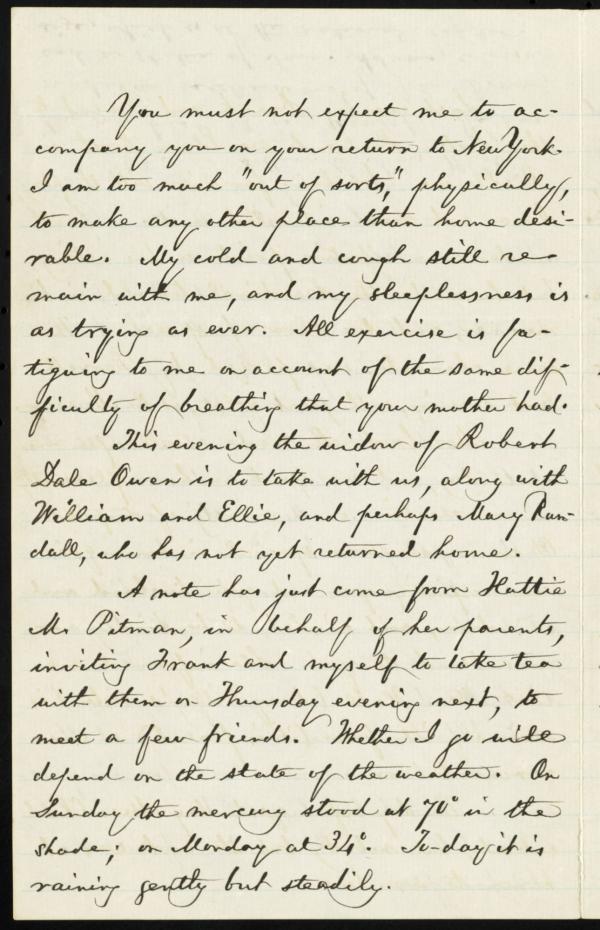 You must not expect me to ac-
company you on your return to New York.
I am too much "out of sorts," physically,
to make any other place than home desi-
rable. My cold and cough still re-
main with me, and my sleeplessness is
as trying as ever. All exercise is fa-
tiguing to me on account of the same dif-
ficulty of breathing that your mother had.
This evening the widow of Robert
Dale Owen is to take with us, along with
William and Ellie, and perhaps Mary Ran-
dall, who has not yet returned home.
A note has just come from Hattie
Mc Pitman, in behalf of her parents,
inviting Frank and myself to take tea
with them on Thursday evening next, to
meet a few friends. Whether I go will
depend on the state of the weather. On
Sunday the mercury stood at 70° in the
shade; on Monday at 34°. To-day it is
raining gently but steadily.